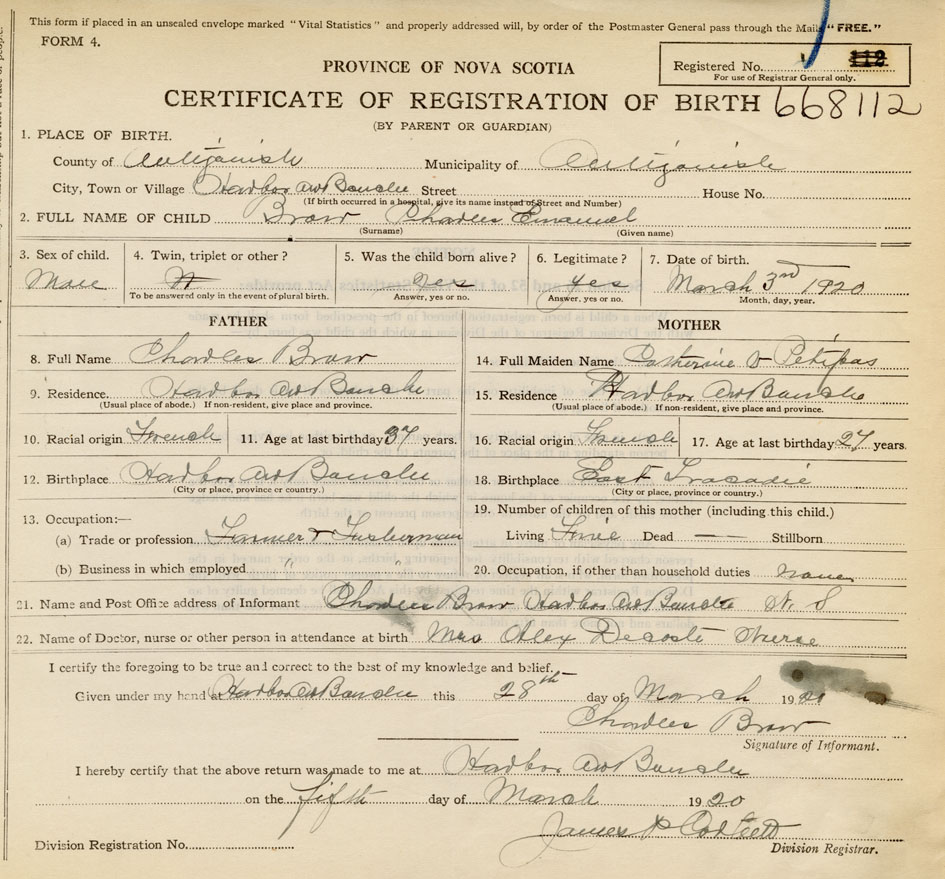 This form if placed in an unsealed envelope marked "Vital Statistics" and properly addressed will, by order of the Postmaster General pass through the Mails "FREE."
FORM 4.
Registered No. 112
For use of Registrar General only.
PROVINCE OF NOVA SCOTIA
CERTIFICATE OF REGISTRATION OF BIRTH 668112
(BY PARENT OR GUARDIAN)
1. PLACE OF BIRTH.
County of Antigonish Municipality of Antigonish
City, Town or Village Harbor Au Bouche Street House No.
(If birth occurred in a hospital, give its name instead of Street and Number)
2. FULL NAME OF CHILD Brow Charles Emanuel
(Surname) (Given name)
3. Sex of child. 4. Twin, triplet or other? 5. Was the child born alive? 6. Legitimate? 7. Date of birth.
Male Yes Yes March 3rd 1920
To be answered only in the event of plural birth. Answer, yes or no. Answer, yes or no. Month, day, year.
FATHER MOTHER
8. Full Name Charles Brow 14. Full Maiden Name Catherine Petipas
9. Residence. Harbor Au Bouche 15. Residence Harbor Au Bouche
(Usual place of abode.) If non-resident, give place and province. (Usual place of abode.) If non-resident, give place and province.
10. Racial origin French 11. Age at last birthday 37 years. 16. Racial origin French 17. Age at last birthday 27 years.
12. Birthplace Harbor Au Bouche 18. Birthplace East Tracadie
(City or place, province or country.) (City or place, province or country.)
13. Occupation:— 19. Number of children of this mother (including this child.)
(a) Trade or profession Farmer & Fisherman Living Dead — — Stillborn
(b) Business in which employed " " 20. Occupation, if other than household duties none
21. Name and Post Office address of Informant Charles Brow Harbor Au Bouche N. S
22. Name of Doctor, nurse or other person in attendance at birth Mrs Alex Decoste Nurse
I certify the foregoing to be true and correct to the best of my knowledge and belief.
Given under my hand at Harbor Au Bouche this 28th day of March 1920
Charles Brow
Signature of Informant.
I hereby certify that the above return was made to me at Harbor Au Bouche
on the fifth day of March 1920
James P Corbett
Division Registration No. Division Registrar.